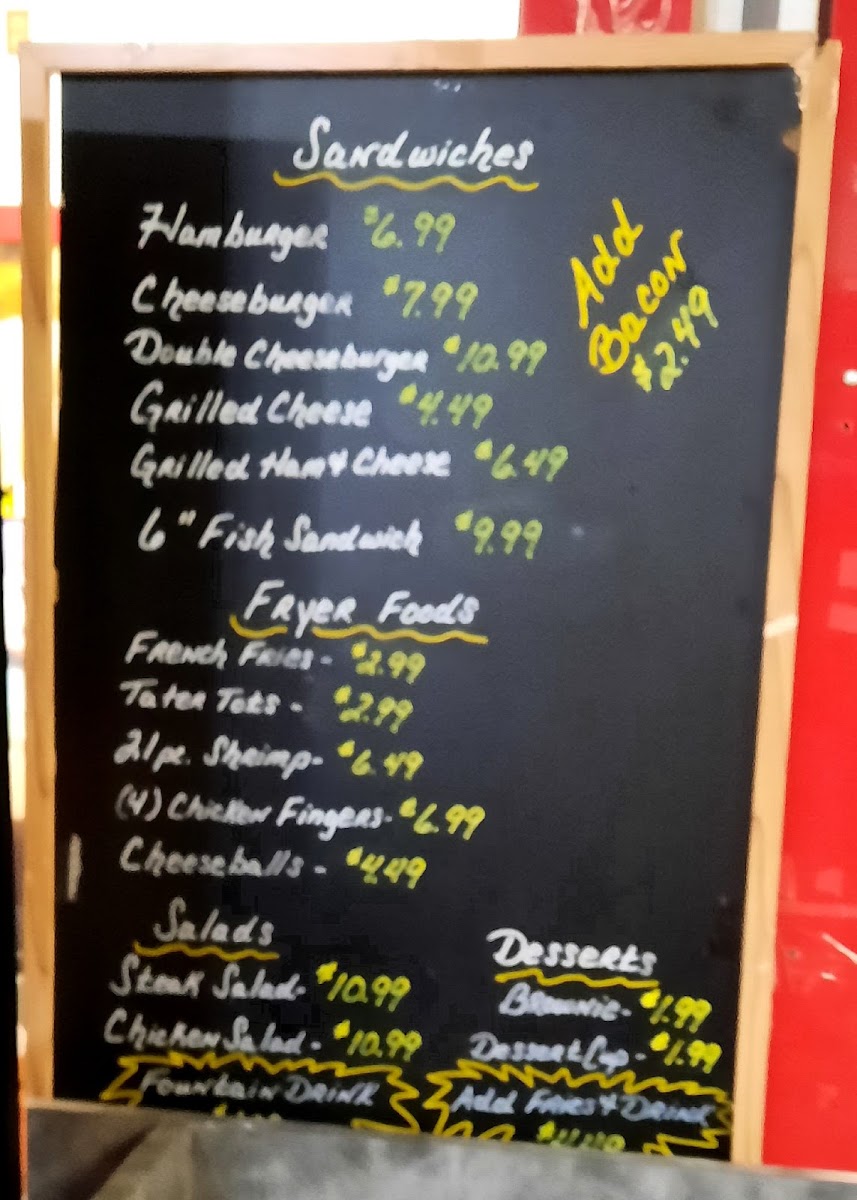 Sandwiches
Hamburger $6.99
Cheeseburger $7.99
Double Cheeseburger $10.99
Grilled Cheese $4.49
Grilled Ham & Cheese $6.49
6" Fish Sandwich $9.99
Add
Bacon
$2.49
Fryer Foods
French Fries - $2.99
Tater Tots - $2.99
21pc. Shrimp - $6.49
(4) Chicken Fingers - $6.99
Cheeseballs - $4.49
Salads
Steak Salad - $10.99
Chicken Salad - $10.99
Fountain Drink
Desserts
Brownie - $1.99
Dessert Cup - $1.99
Add Fries & Drink